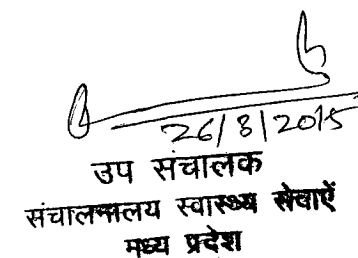 26/8/2015
उप संचालक
संचालनालय स्वास्थ्य सेवाऐं
मध्य प्रदेश